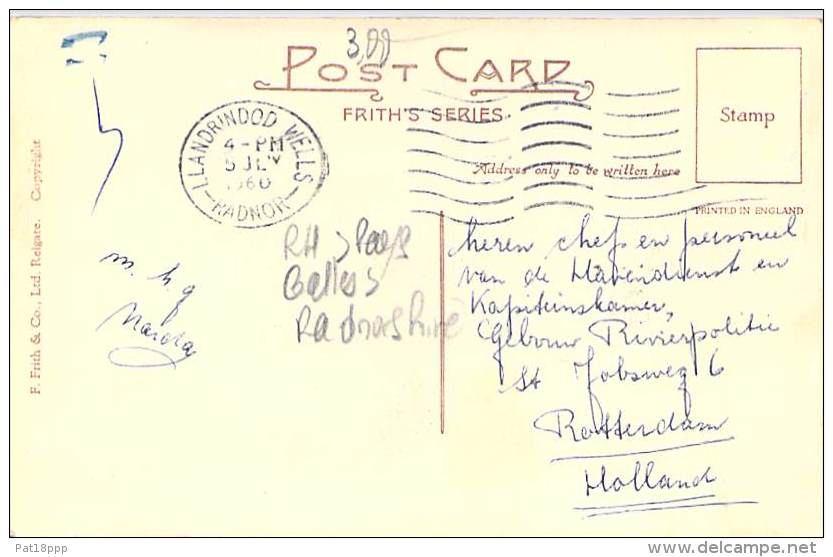 3,00
POST CARD
FRITH'S SERIES.
Stamp
LLANDRINDOD WELLS
4 - PM
5 JLY
1960
RADNOR
Address only to be written here
PRINTED IN ENGLAND
F. Frith & Co., Ltd. Reigate. Copyright
m. h. g
RH > Pays
Galles >
Radnorshire
heren chef en personeel
van de Havendienst en
Kapiteinskamer,
Gebouw Rivierpolitie
St Jobsweg 6
Rotterdam
Holland
Pat18ppp
www.delcampe.net